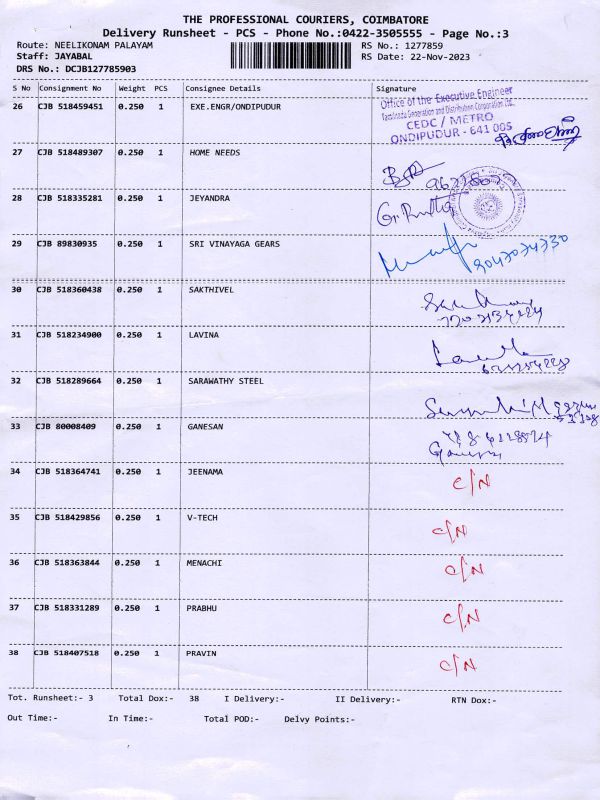 THE PROFESSIONAL COURIERS, COIMBATORE
Delivery Runsheet - PCS - Phone No.:0422-3505555 - Page No.:3
Route: NEELIKONAM PALAYAM RS No.: 1277859
Staff: JAYABAL RS Date: 22-Nov-2023
DRS No.: DCJB127785903
S No Consignment No Weight PCS Consignee Details Signature
26 CJB 518459451 0.250 1 EXE.ENGR/ONDIPUDUR
Office of the Executive Engineer
Tamilnadu Generation and Distribution Corporation Ltd.,
CEDC / METRO
ONDIPUDUR - 641 005
27 CJB 518489307 0.250 1 HOME NEEDS
28 CJB 518335281 0.250 1 JEYANDRA
29 CJB 89830935 0.250 1 SRI VINAYAGA GEARS
30 CJB 518360438 0.250 1 SAKTHIVEL
31 CJB 518234900 0.250 1 LAVINA
32 CJB 518289664 0.250 1 SARAWATHY STEEL
33 CJB 80008409 0.250 1 GANESAN
34 CJB 518364741 0.250 1 JEENAMA C/N
35 CJB 518429856 0.250 1 V-TECH C/N
36 CJB 518363844 0.250 1 MENACHI C/N
37 CJB 518331289 0.250 1 PRABHU C/N
38 CJB 518407518 0.250 1 PRAVIN C/N
Tot. Runsheet:- 3 Total Dox:- 38 I Delivery:- II Delivery:- RTN Dox:-
Out Time:- In Time:- Total POD:- Delvy Points:-